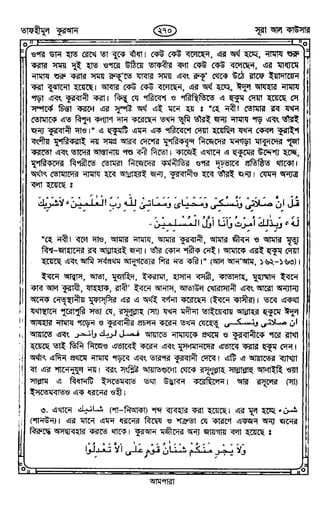 তাফহীমুল কুরআন
২৭০
সূরা আল কাউসার
ওপর ডান হাত রেখে তা বুকে বাঁধা। কেউ কেউ বলেছেন, এর অর্থ হচ্ছে, নামায শুরু
করার সময় দুই হাত ওপরে উঠিয়ে তাকবীর বলা কেউ কেউ বলেছেন, এর মাধ্যমে
নামায শুরু করার সময় রুকূ'তে যাবার সময় এবং রুকূ' থেকে উঠে রাফে ইয়াদায়েন
করা বুঝানো হয়েছে। আবার কেউ কেউ বলেছেন, এর অর্থ হচ্ছে, ঈদুল আযহার নামায
পড়া এবং কুরবানী করা। কিন্তু যে পরিবেশ ও পরিস্থিতিতে এ হুকুম দেয়া হয়েছে সে
সম্পর্কে চিন্তা করলে এর সুস্পষ্ট অর্থ এই মনে হয় : "হে নবী! তোমার রব যখন
তোমাকে এত বিপুল কল্যাণ দান করেছেন তখন তুমি তাঁরই জন্য নামায পড় এবং তাঁরই
জন্য কুরবানী দাও।" এ হুকুমটি এমন এক পরিবেশে দেয়া হয়েছিল যখন কেবল কুরাইশ
বংশীয় মুশরিকরাই নয় সমগ্র আরব দেশের মুশরিকবৃন্দ নিজেদের মনগড়া মাবুদদের পূজা
করতো এবং তাদের আস্তানায় পশু বলী দিতো। কাজেই এখানে এ হুকুমের উদ্দেশ্য হচ্ছে,
মুশরিকদের বিপরীতে তোমরা নিজেদের কর্মনীতির ওপর দৃঢ়ভাবে প্রতিষ্ঠিত থাকো।
অর্থাৎ তোমাদের নামায হবে আল্লাহরই জন্য, কুরবানীও হবে তাঁরই জন্য। যেমন অন্যত্র
বলা হয়েছে :
قُلْ اِنَّ صَلَاتِىْ وَنُسُكِىْ وَمَحْيَاىَ وَمَمَاتِىْ لِلّٰهِ رَبِّ الْعٰلَمِيْنَ - لَا شَرِيْكَ
لَهٗ وَبِذٰلِكَ اُمِرْتُ وَاَنَا اَوَّلُ الْمُسْلِمِيْنَ -
"হে নবী! বলে দাও, আমার নামায, আমার কুরবানী, আমার জীবন ও আমার মৃত্যু
বিশ্ব-জাহানের রব আল্লাহরই জন্য। তাঁর কোন শরীক নেই। আমাকে এরই হুকুম দেয়া
হয়েছে এবং আমি সর্বপ্রথম আনুগত্যের শির নত করি।" (আল আন'আম, ১৬২-১৬৩)।
ইবনে আব্বাস, আতা, মুজাহিদ, ইকরামা, হাসান বসরী, কাতাদাহ, মুহাম্মাদ ইবনে
কাব আল কুরাযী, যাহহাক, রাবী' ইবনে আনাস, আতাউল খোরাসানী এবং আরো অন্যান্য
অনেক নেতৃস্থানীয় মুফাস্সির এর এ অর্থই বর্ণনা করেছেন (ইবনে কাসীর)। তবে একথা
যথাস্থানে পুরোপুরি সত্য যে, রসূলুল্লাহ (সা) যখন মদীনা তাইয়েবায় আল্লাহর হুকুমে ঈদুল
আযহার নামায পড়েন ও কুরবানীর প্রচলন করেন তখন যেহেতু ان صلاتى ونسكى
আয়াতে এবং فصل لربك وانحر আয়াতে নামাযকে প্রথমে ও কুরবানীকে পরে রাখা
হয়েছে তাই তিনি নিজেও এভাবেই করেন এবং মুসলমানদের এভাবে করার হুকুম দেন।
অর্থাৎ এদিন প্রথমে নামায পড়বে এবং তারপর কুরবানী দেবে। এটি এ আয়াতের ব্যাখ্যা
বা এর শানেনুযুল নয়। বরং সংশ্লিষ্ট আয়াতগুলো থেকে রসূলুল্লাহ সাল্লাল্লাহু আলাইহি ওয়া
সাল্লাম এ বিধানটি ইসতেমবাত তথা উদ্ভাবন করেছিলেন। আর রসূলের (সা)
ইসতেমবাতও এক ধরনের অহী।
৩. এখানে شانئك (শা-নিআকা) শব্দ ব্যবহার করা হয়েছে। এর মূল হচ্ছে شنء
(শানউন)। এর মানে এমন ধরনের বিদ্বেষ ও শত্রুতা যে কারণে একজন অন্য জনের
বিরুদ্ধে অসদ্ব্যবহার করতে থাকে। কুরআন মজীদের অন্য জায়গায় বলা হয়েছে :
وَلَا يَجْرِ مَنَّكُمْ شَنَاٰنُ قَوْمٍ عَلٰى اَلَّا تَعْدِلُوْا
আমপারা